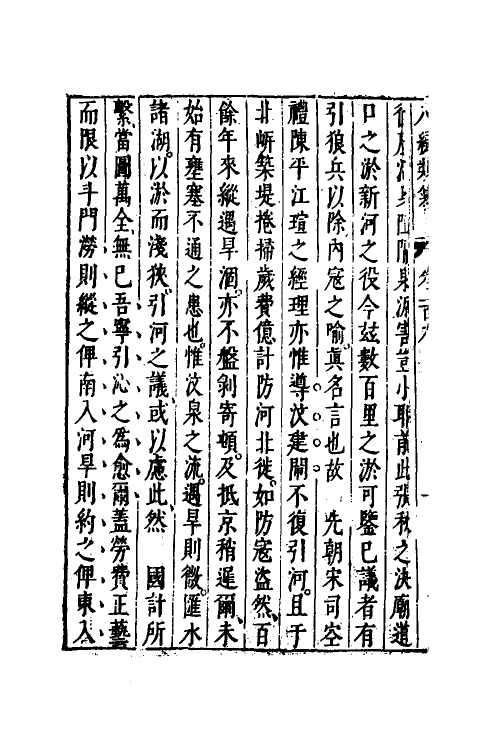 八編類纂 卷一百九
泉源害豈小耶前此張秋之決廟道
口之淤新河之役今玆數百里之淤可鑒巳議者有
引狼兵以除內寇之喻真名言也故 先朝宋司空
禮陳平江瑄之經理亦惟導汶建閘不復引河且于
北岍築堤捲掃歲費億計防河北徙如防寇盜然百
餘年來縱遇旱涸亦不盤剝寄頓及抵京稍遲爾未
始有壅塞不通之患也惟汶泉之流遇旱則微匯水
諸湖以淤而淺狹引河之議或以慮此然 國計所
繫當圖萬全無巳吾寧引沁之為愈爾蓋勞費正藝
而限以斗門澇則縱之俾南入河旱則約之俾東入